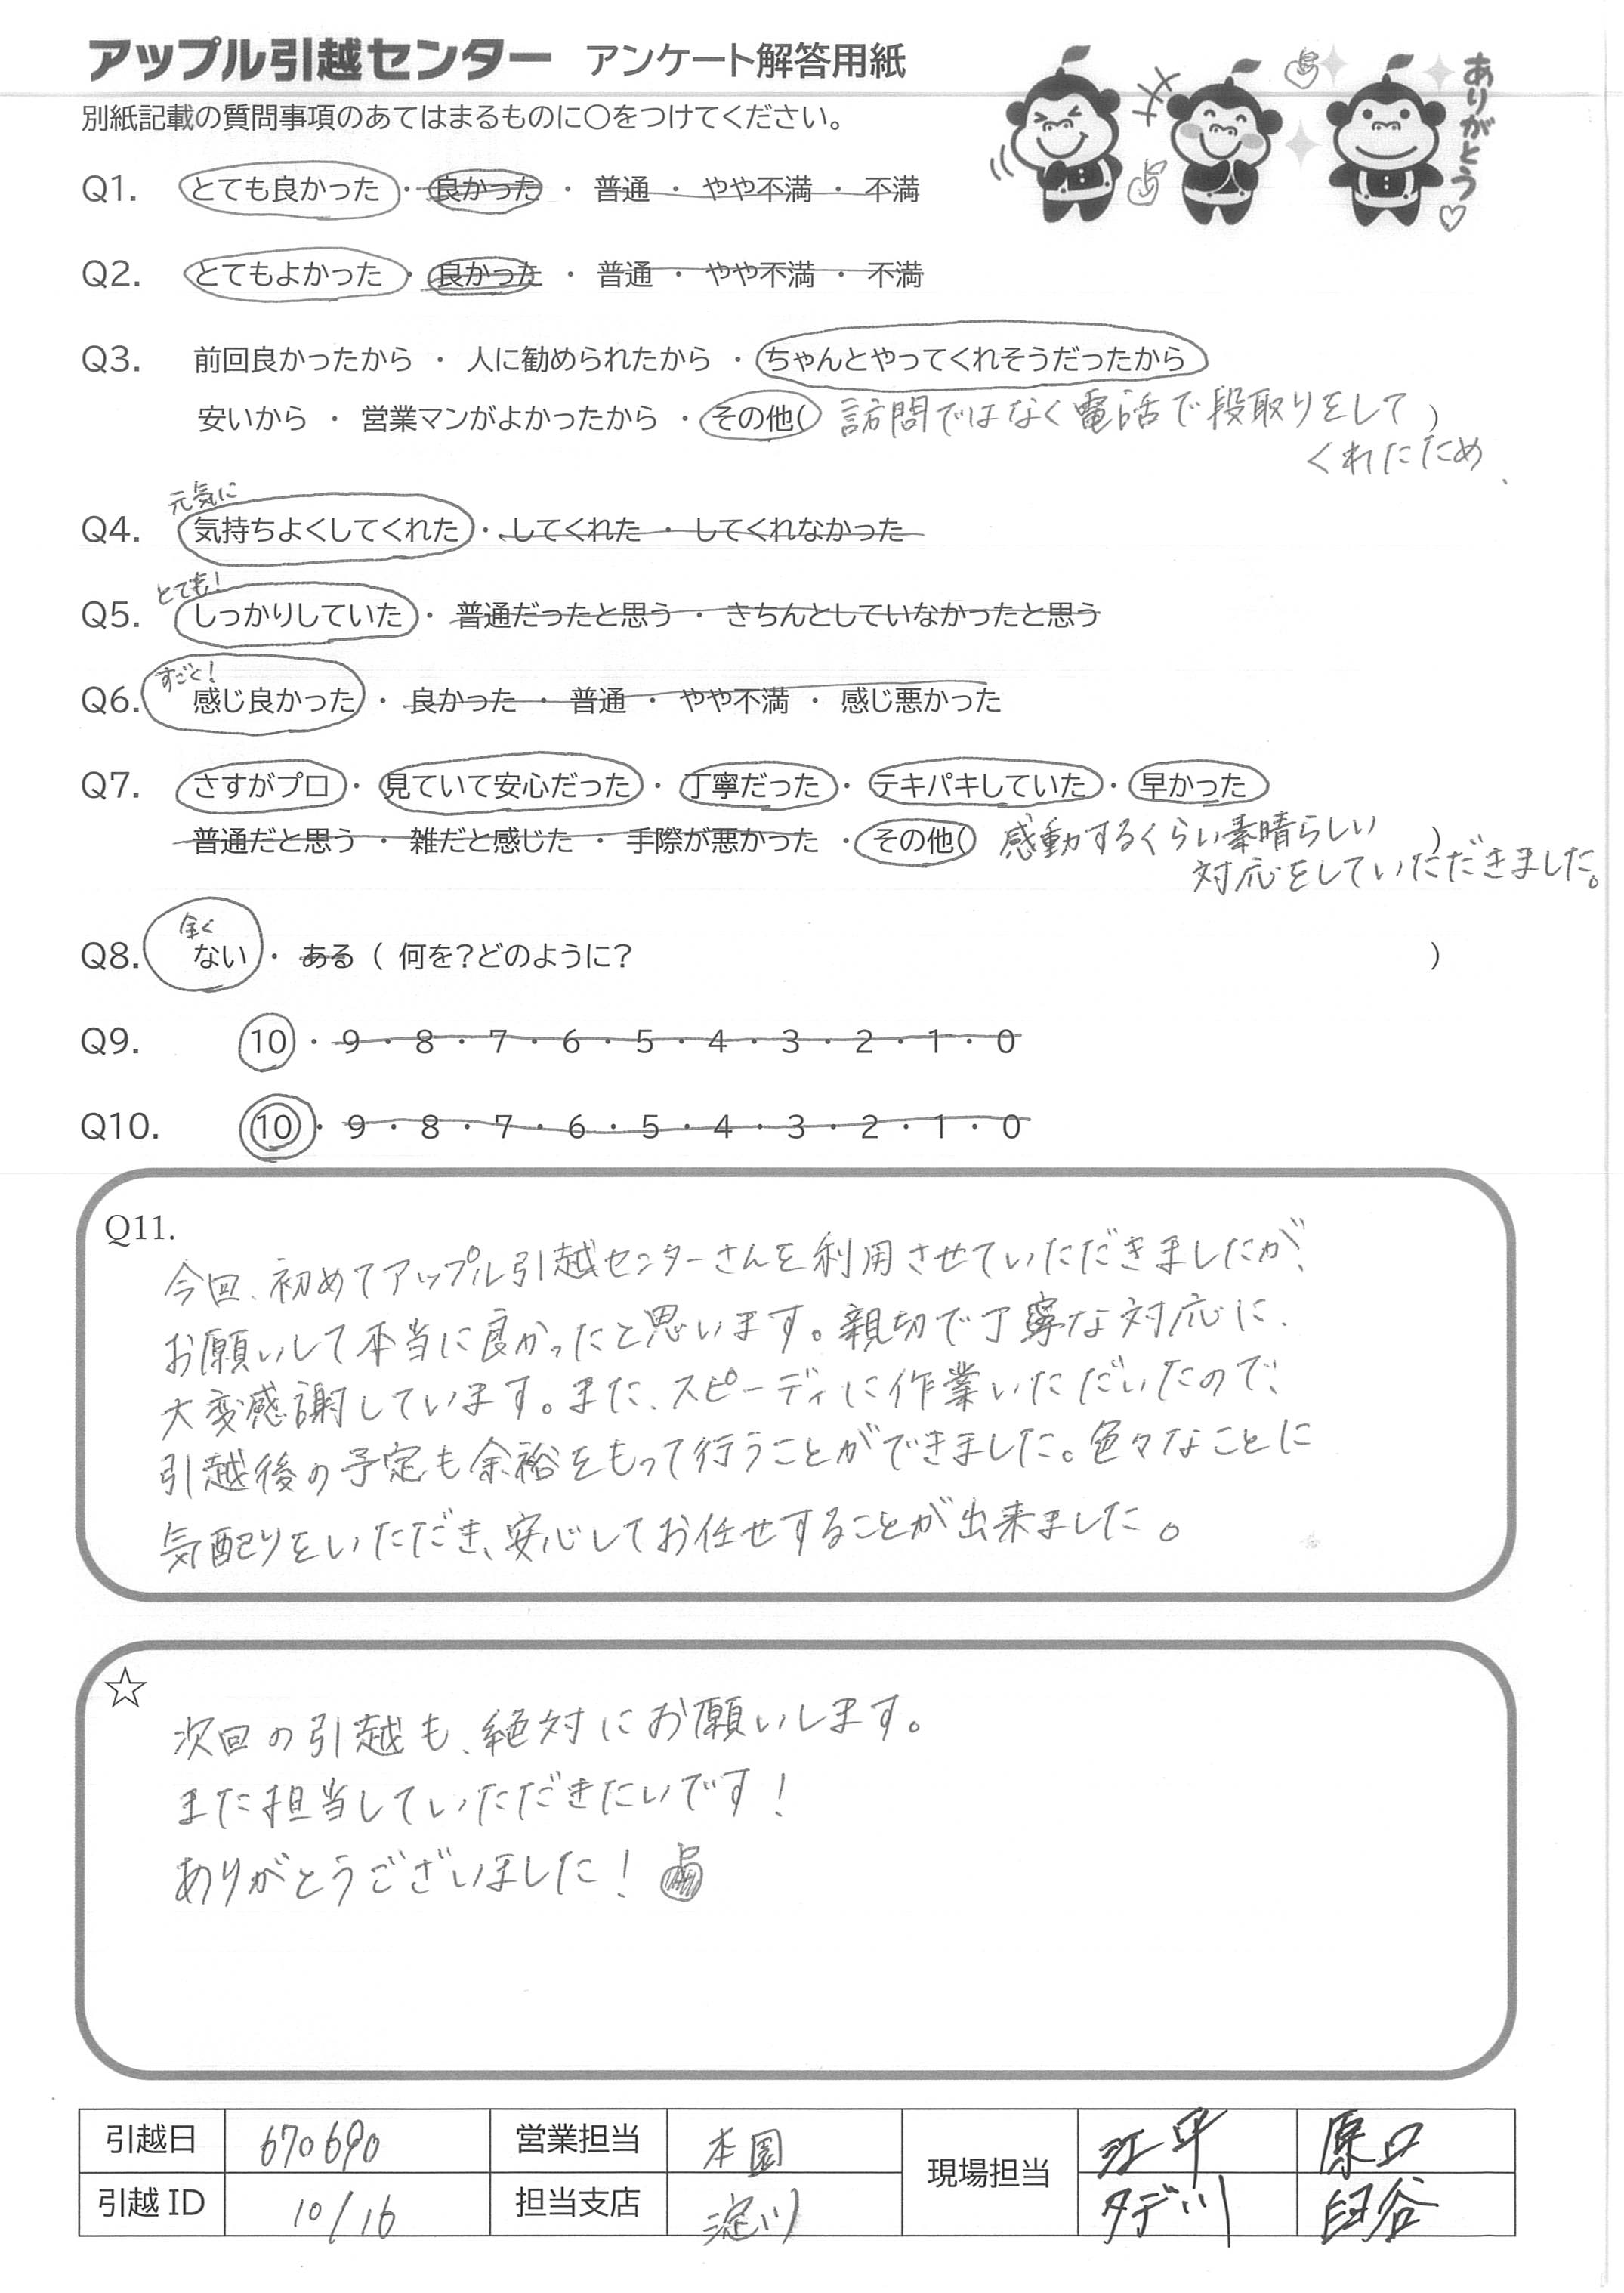 アップル引越センター アンケート解答用紙
別紙記載の質問事項のあてはまるものに〇をつけてください。
ありがとう♡
Q1. とても良かった ・ 良かった ・ 普通 ・ やや不満 ・ 不満
Q2. とてもよかった ・ 良かった ・ 普通 ・ やや不満 ・ 不満
Q3. 前回良かったから ・ 人に勧められたから ・ ちゃんとやってくれそうだったから
安いから ・ 営業マンがよかったから ・ その他( 訪問ではなく電話で段取りをして )
くれたため
元気に
Q4. 気持ちよくしてくれた ・ してくれた ・ してくれなかった
とても!
Q5. しっかりしていた ・ 普通だったと思う ・ きちんとしていなかったと思う
すごく!
Q6. 感じ良かった ・ 良かった ・ 普通 ・ やや不満 ・ 感じ悪かった
Q7. さすがプロ ・ 見ていて安心だった ・ 丁寧だった ・ テキパキしていた ・ 早かった
普通だと思う ・ 雑だと感じた ・ 手際が悪かった ・ その他( 感動するくらい素晴らしい )
対応をしていただきました。
全く
Q8. ない ・ ある ( 何を?どのように? )
Q9. 10 ・ 9 ・ 8 ・ 7 ・ 6 ・ 5 ・ 4 ・ 3 ・ 2 ・ 1 ・ 0
Q10. 10 ・ 9 ・ 8 ・ 7 ・ 6 ・ 5 ・ 4 ・ 3 ・ 2 ・ 1 ・ 0
Q11.
今回、初めてアップル引越センターさんを利用させていただきましたが、
お願いして本当に良かったと思います。親切で丁寧な対応に、
大変感謝しています。また、スピーディに作業いただいたので、
引越後の予定も余裕をもって行うことができました。色々なことに
気配りをいただき、安心してお任せすることが出来ました。
☆
次回の引越も、絶対にお願いします。
また担当していただきたいです!
ありがとうございました!
引越日 670690 営業担当 本園 現場担当 江平 原口
引越ID 10/16 担当支店 淀川 タデ川 臼谷